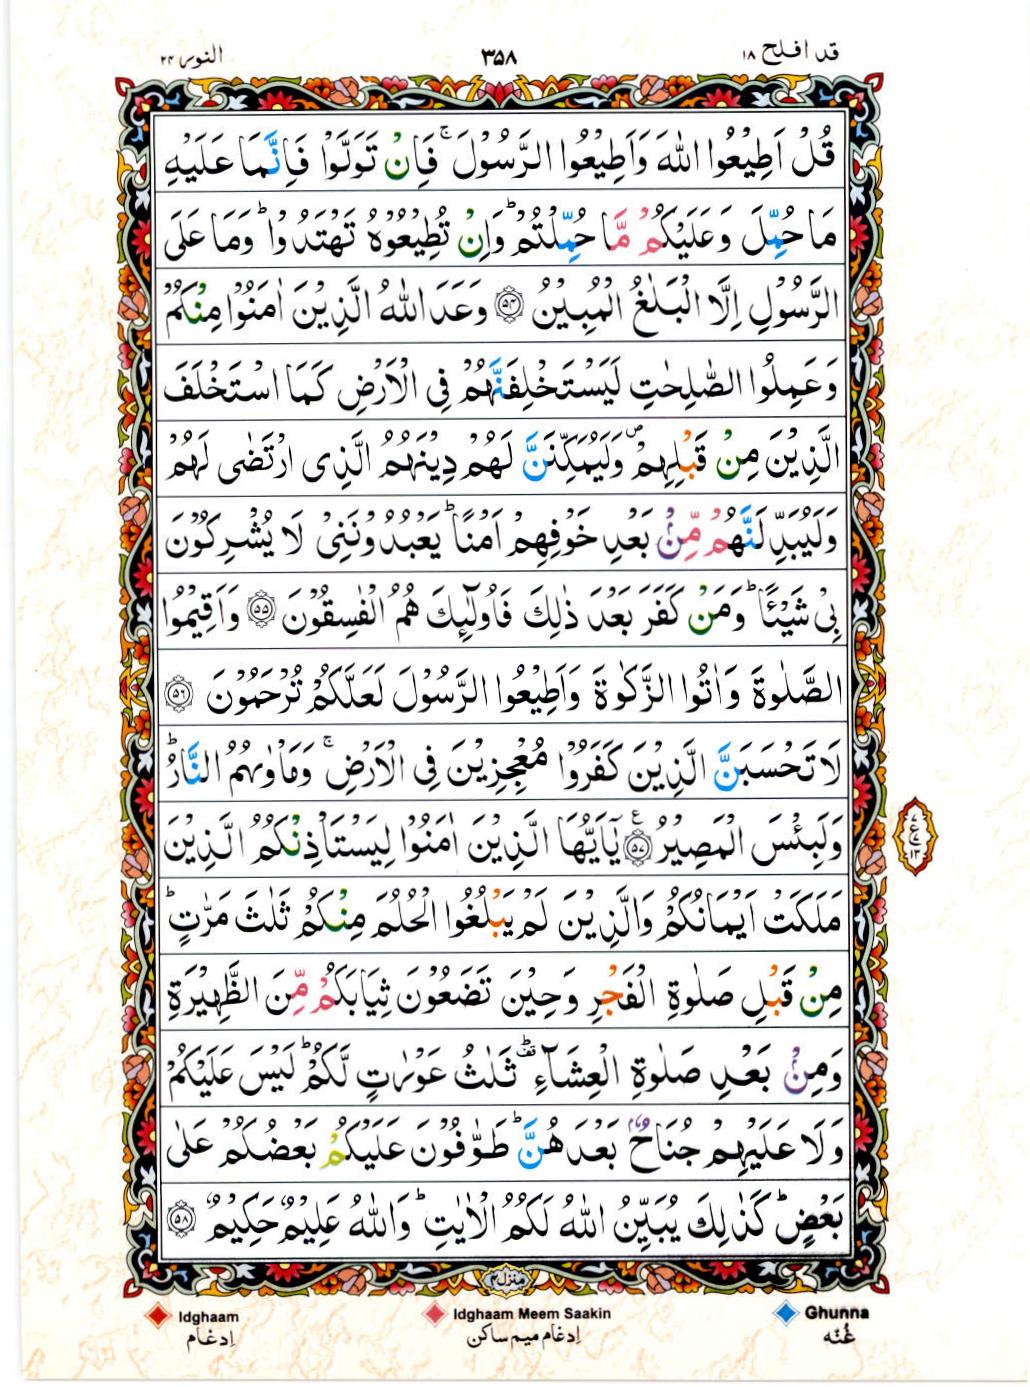 قد افلح ۱۸
۳۵۸
النور ۲۴
قُلْ اَطِیْعُوا اللّٰهَ وَاَطِیْعُوا الرَّسُوْلَ ۚ فَاِنْ تَوَلَّوْا فَاِنَّمَا عَلَیْهِ
مَا حُمِّلَ وَعَلَیْكُمْ مَّا حُمِّلْتُمْ ؕ وَاِنْ تُطِیْعُوْهُ تَهْتَدُوْا ؕ وَمَا عَلَی
الرَّسُوْلِ اِلَّا الْبَلٰغُ الْمُبِیْنُ ﴿۵۴﴾ وَعَدَ اللّٰهُ الَّذِیْنَ اٰمَنُوْا مِنْكُمْ
وَعَمِلُوا الصّٰلِحٰتِ لَیَسْتَخْلِفَنَّهُمْ فِی الْاَرْضِ كَمَا اسْتَخْلَفَ
الَّذِیْنَ مِنْ قَبْلِهِمْ ۪ وَلَیُمَكِّنَنَّ لَهُمْ دِیْنَهُمُ الَّذِی ارْتَضٰی لَهُمْ
وَلَیُبَدِّلَنَّهُمْ مِّنْۢ بَعْدِ خَوْفِهِمْ اَمْنًا ؕ یَعْبُدُوْنَنِیْ لَا یُشْرِكُوْنَ
بِیْ شَیْـًٔا ؕ وَمَنْ كَفَرَ بَعْدَ ذٰلِكَ فَاُولٰٓئِكَ هُمُ الْفٰسِقُوْنَ ﴿۵۵﴾ وَاَقِیْمُوا
الصَّلٰوةَ وَاٰتُوا الزَّكٰوةَ وَاَطِیْعُوا الرَّسُوْلَ لَعَلَّكُمْ تُرْحَمُوْنَ ﴿۵۶﴾
لَا تَحْسَبَنَّ الَّذِیْنَ كَفَرُوْا مُعْجِزِیْنَ فِی الْاَرْضِ ۚ وَمَاْوٰىهُمُ النَّارُ ؕ
وَلَبِئْسَ الْمَصِیْرُ ﴿۵۷﴾ ع یٰۤاَیُّهَا الَّذِیْنَ اٰمَنُوْا لِیَسْتَاْذِنْكُمُ الَّذِیْنَ
مَلَكَتْ اَیْمَانُكُمْ وَالَّذِیْنَ لَمْ یَبْلُغُوا الْحُلُمَ مِنْكُمْ ثَلٰثَ مَرّٰتٍ ؕ
مِنْ قَبْلِ صَلٰوةِ الْفَجْرِ وَحِیْنَ تَضَعُوْنَ ثِیَابَكُمْ مِّنَ الظَّهِیْرَةِ
وَمِنْۢ بَعْدِ صَلٰوةِ الْعِشَآءِ ۛؕ ثَلٰثُ عَوْرٰتٍ لَّكُمْ ؕ لَیْسَ عَلَیْكُمْ
وَلَا عَلَیْهِمْ جُنَاحٌۢ بَعْدَهُنَّ ؕ طَوّٰفُوْنَ عَلَیْكُمْ بَعْضُكُمْ عَلٰی
بَعْضٍ ؕ كَذٰلِكَ یُبَیِّنُ اللّٰهُ لَكُمُ الْاٰیٰتِ ؕ وَاللّٰهُ عَلِیْمٌ حَكِیْمٌ ﴿۵۸﴾
منزل ۴
Ghunna
غُنّه
Idghaam Meem Saakin
اِدغام میم ساکن
Idghaam
اِدغام